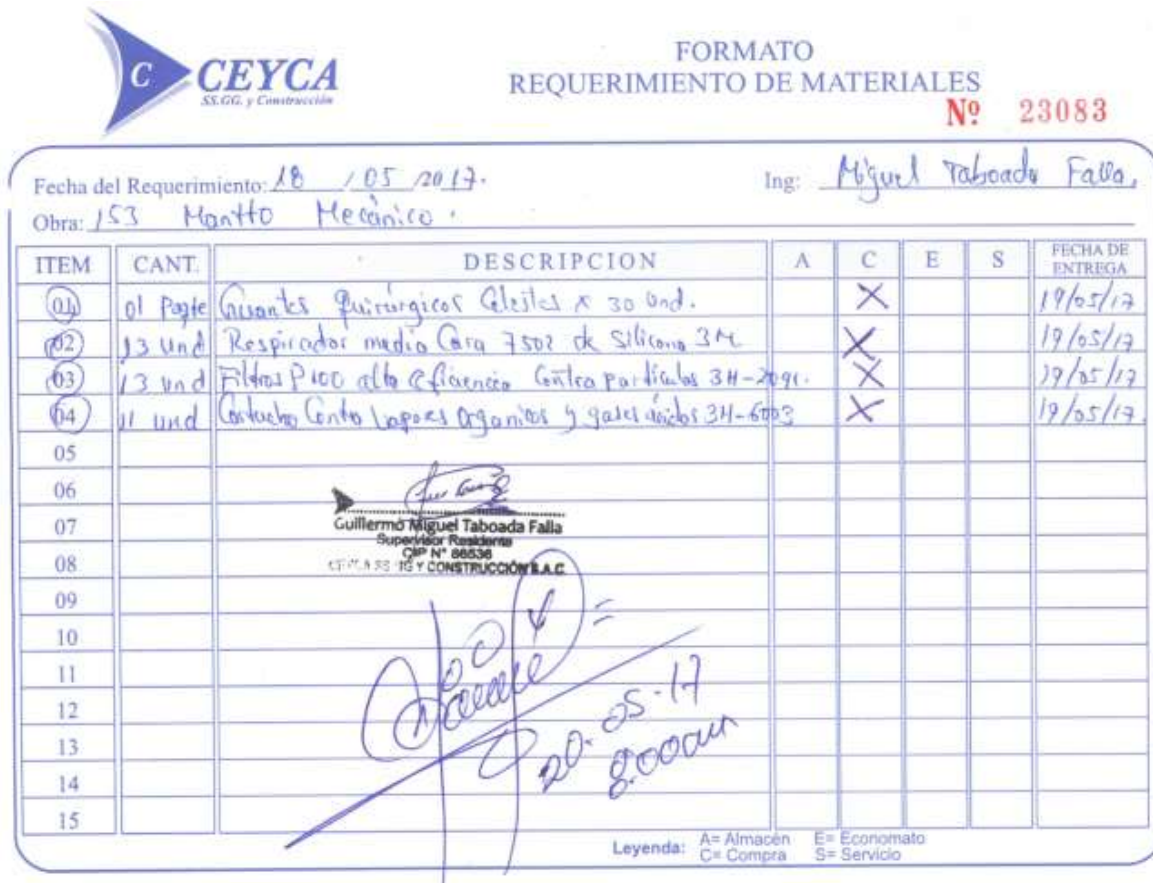 C CEYCA
SS.GG. y Construcción
FORMATO
REQUERIMIENTO DE MATERIALES
Nº 23083
Fecha del Requerimiento: 18 / 05 / 2017. Ing: Miguel Taboada Falla,
Obra: 153 Mantto Mecánico.
ITEM CANT. DESCRIPCION A C E S FECHA DE ENTREGA
01 01 Guantes Quirúrgicos Celestes x 30 Und. X 19/05/17
02 13 Und Respirador media Cara 7502 de Silicona 3M X 19/05/17
03 13 Und Filtros P100 alta eficiencia Contra partículas 3M-2091. X 19/05/17
04 11 Und Cartucho Contra Vapores Organicos y gases ácidos 3M-6003 X 19/05/17.
05
06
07
08
09
10
11
12
13
14
15
Guillermo Miguel Taboada Falla
Supervisor Residente
CIP N° 86536
Y CONSTRUCCIÓN S.A.C.
20-05-17
8:00am
Leyenda: A= Almacén E= Economato
C= Compra S= Servicio